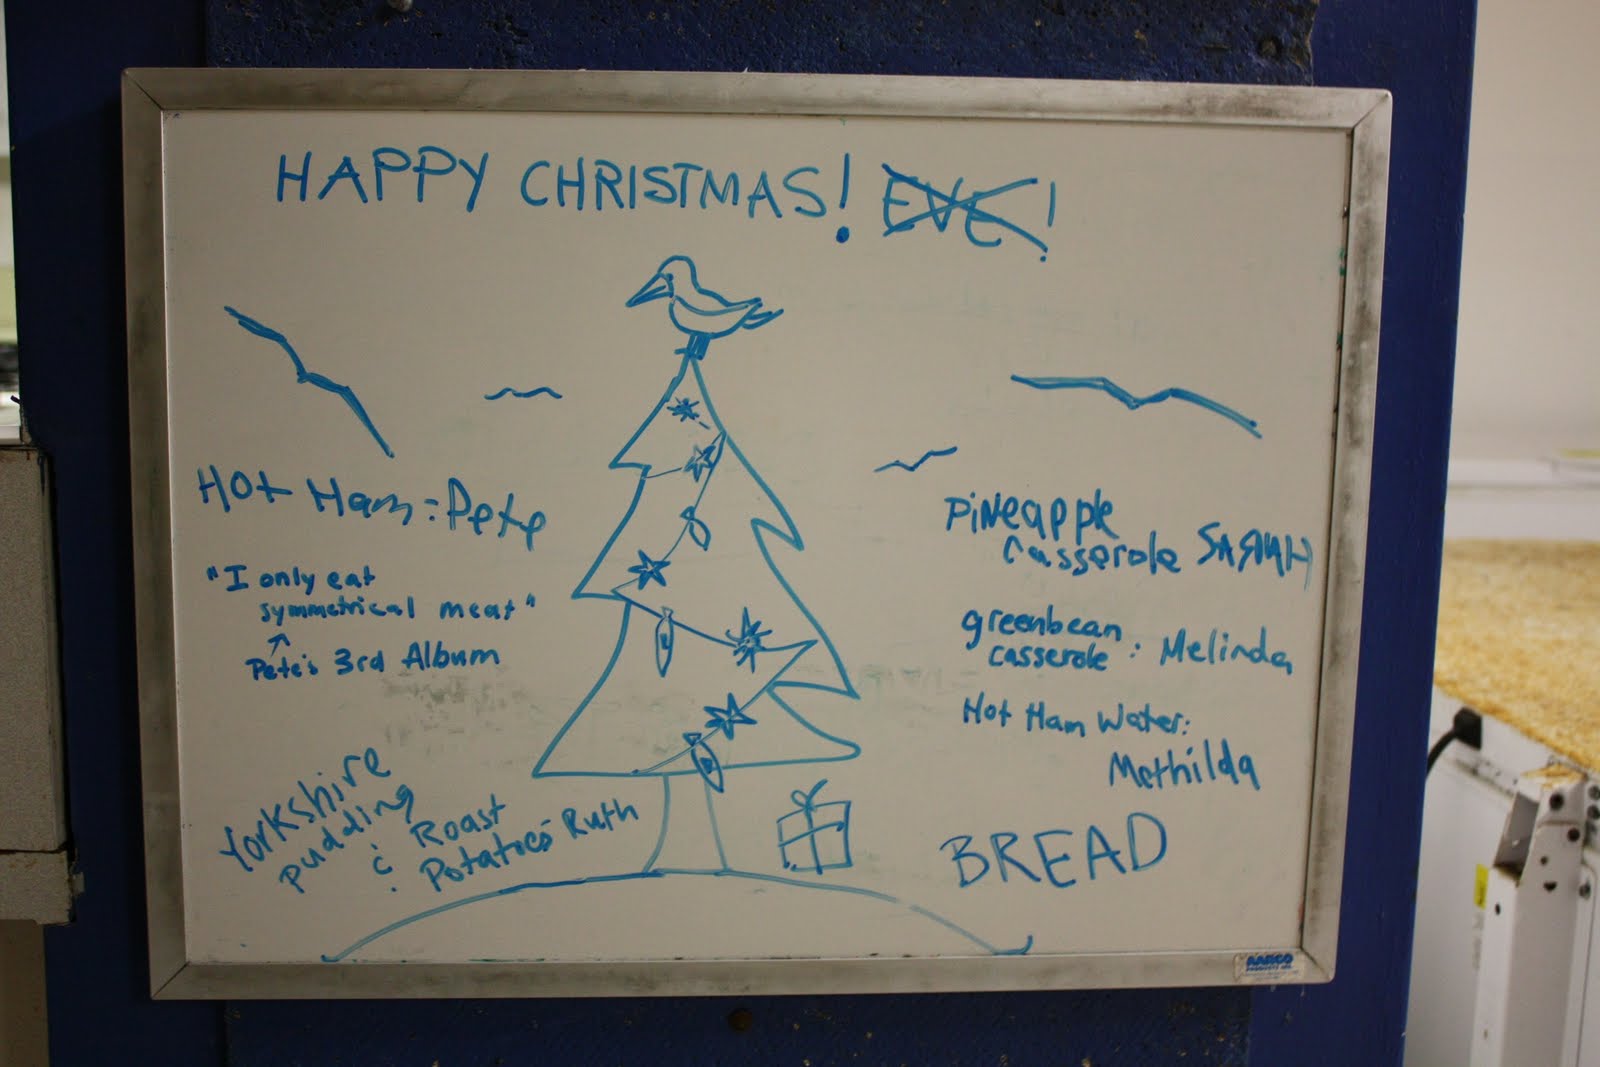 HAPPY CHRISTMAS! EVE!
HOT Ham: Pete
"I only eat
symmetrical meat"
Pete's 3rd Album
Yorkshire
pudding
& Roast
Potatoes - Ruth
Pineapple
Casserole SARAH
greenbean
casserole : Melinda
Hot Ham Water:
Methilda
BREAD
AARCO
PRODUCTS INC.